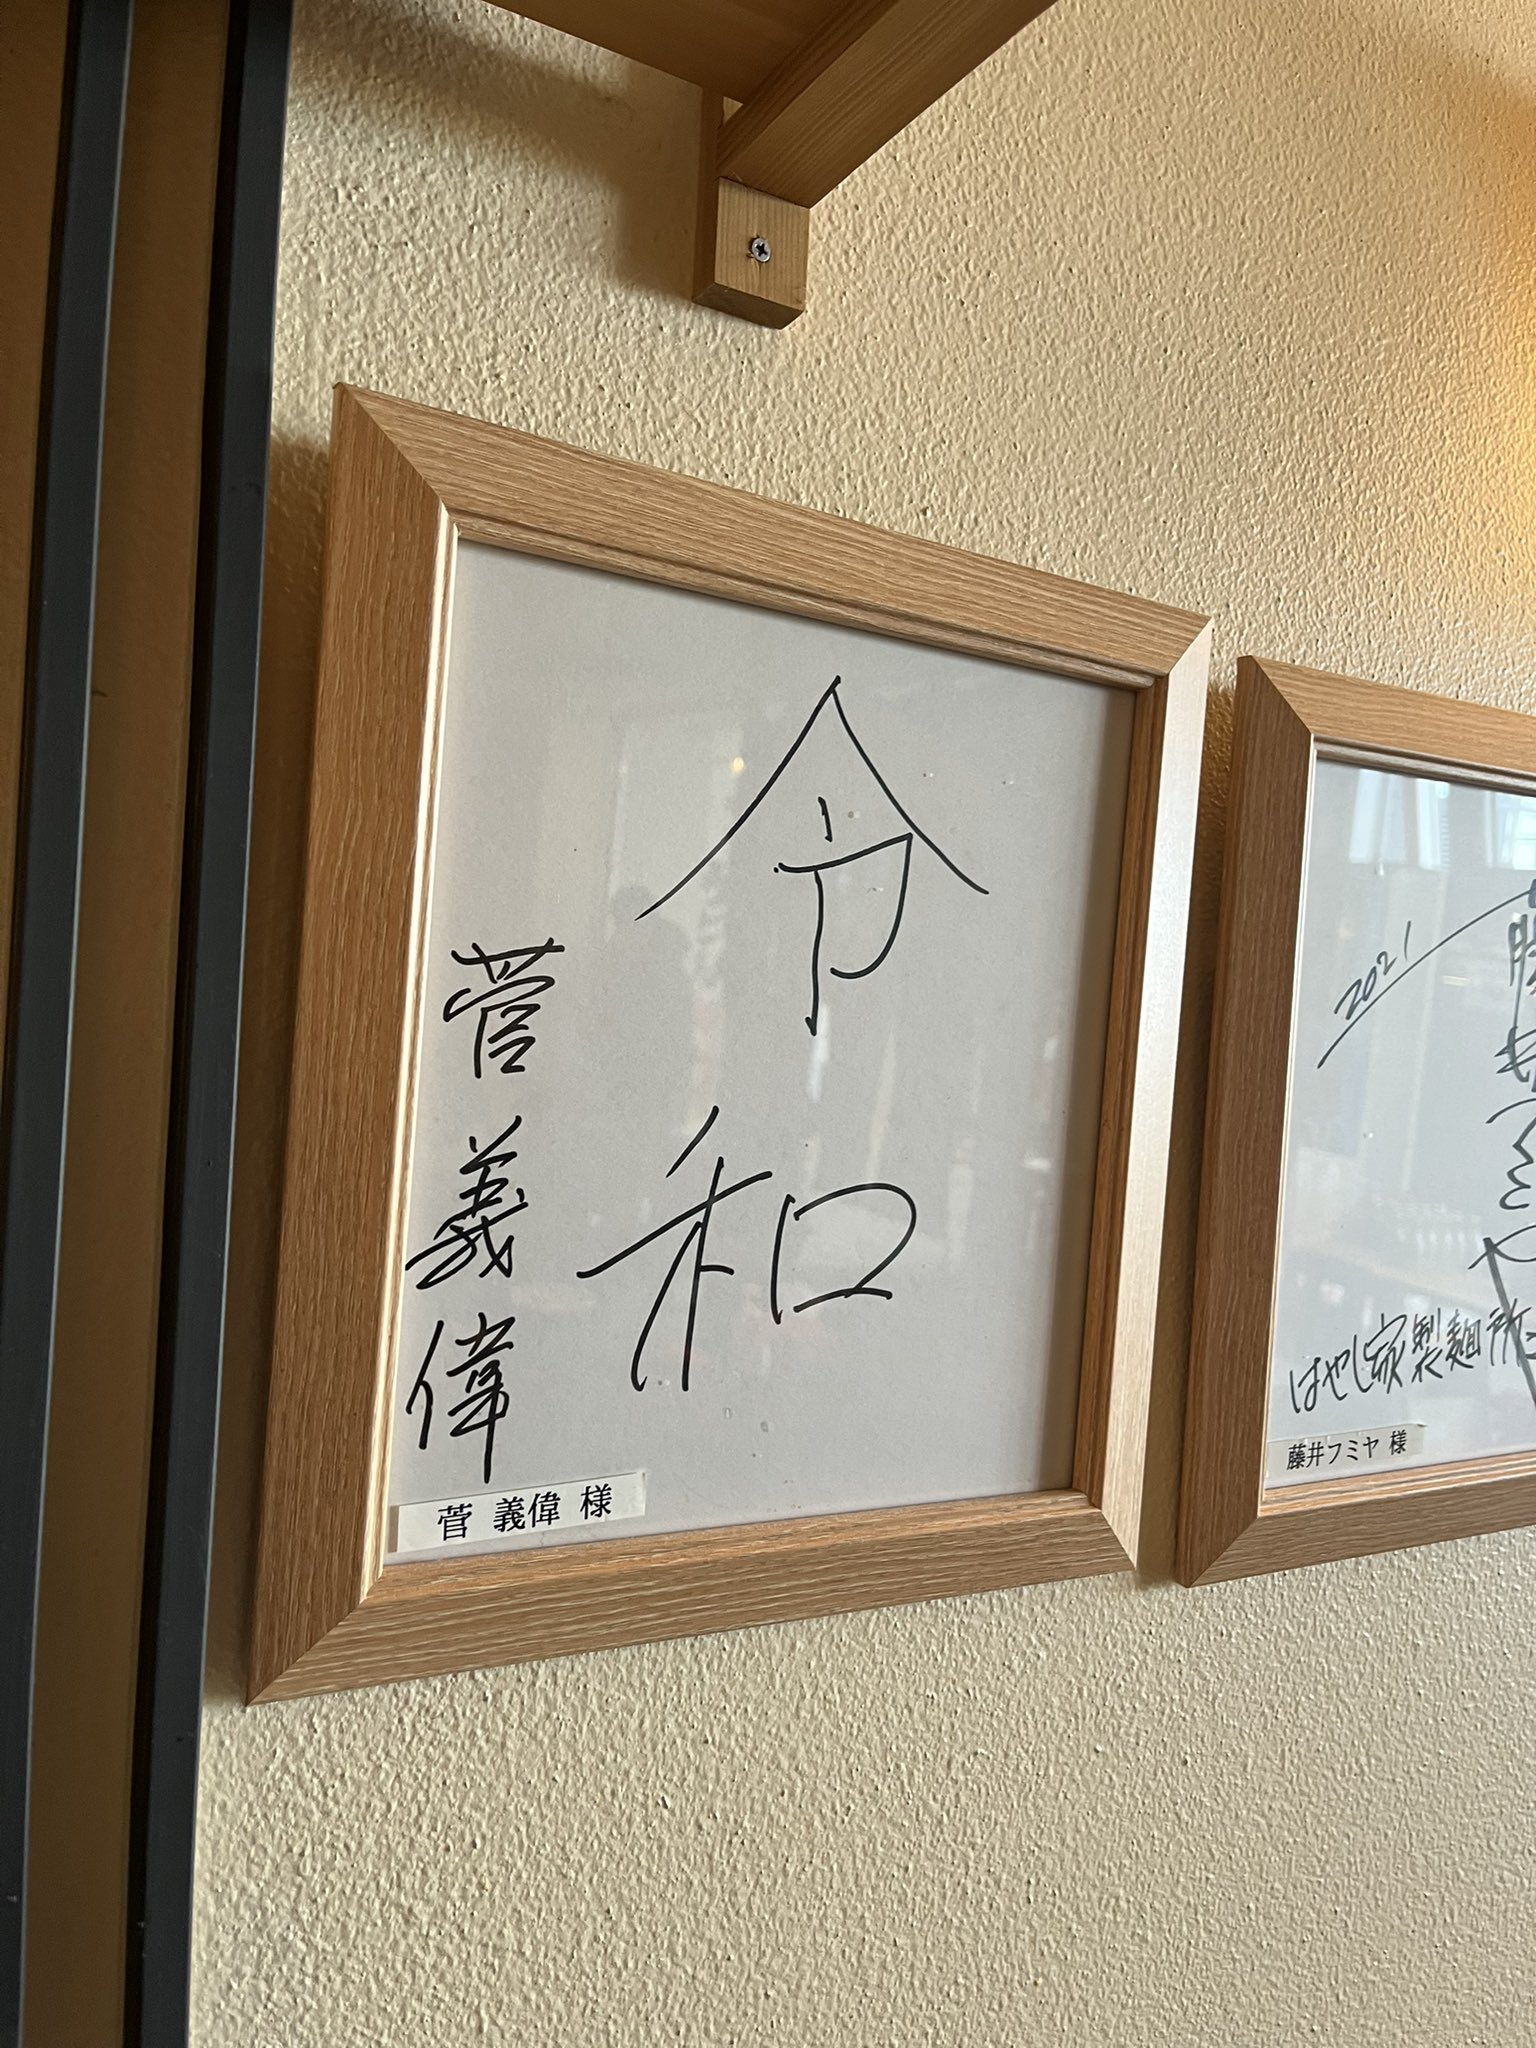 令和
菅義偉
菅 義偉 様
2021
はやし家製麺所
藤井フミヤ 様